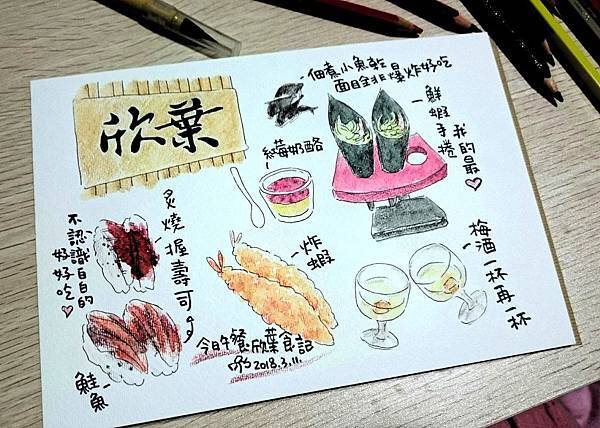 欣葉
佃煮小魚乾
面目全非但是爆炸好吃
鮮蝦手捲
我的最♡
紅莓奶酪
炙燒握壽司
不認識白白的
好好吃♡
炸蝦
梅酒一杯再一杯
鮭魚
今日午餐欣葉食記
2018.3.11.